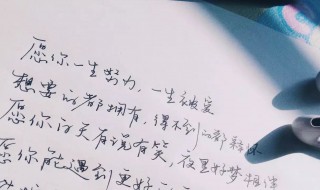 愿你一生努力,一生被爱
想要的都拥有,得不到的都释怀
愿你白天有说有笑,夜里好梦
愿你能遇到更好